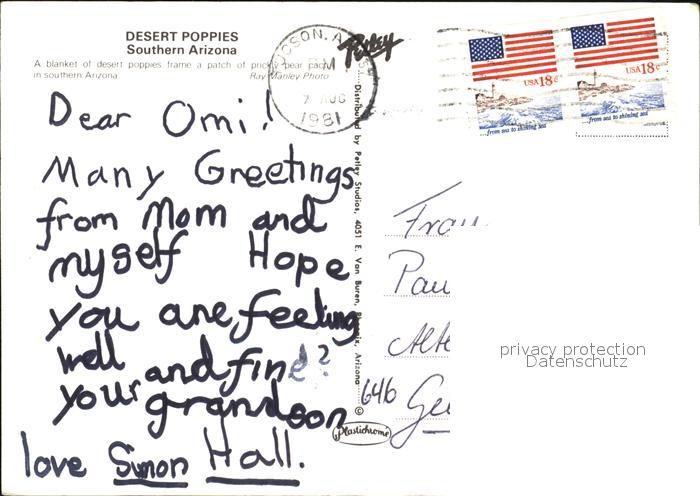 DESERT POPPIES
Southern Arizona
A blanket of desert poppies frame a patch of prickly pear cacti
in southern Arizona. Ray Manley Photo
Petley
7 AUG
1981
USA 18c
...from sea to shining sea
USA 18c
...from sea to shining sea
Dear Omi!
Many Greetings
from Mom and
myself Hope
you are feeling
well and fine?
your grandson
love Simon Hall.
Distributed by Petley Studios, 4051 E. Van Buren, Phoenix, Arizona
©
Plastichrome
Frau
Pau
Alte
646 Ge
privacy protection
Datenschutz